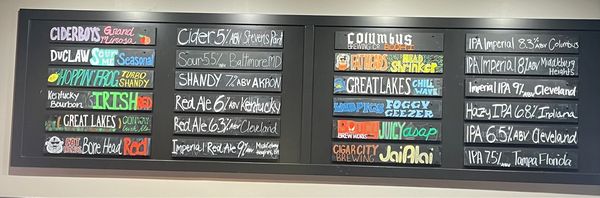 CIDERBOYS Grand Mimosa
Cider 5% ABV Stevens Point
DuCLAW SOUR ME Seasonal
Sour 5.5% Baltimore, MD
HOPPIN' FROG TURBO SHANDY
SHANDY 7% ABV AKRON
Kentucky Bourbon IRISH RED
Red Ale 6% Kentucky
GREAT LAKES CONWAY'S Irish Ale
Red Ale 6.3% ABV Cleveland
FAT HEADS Bone Head Red!
Imperial Red Ale 9% ABV Middleburg Heights, OH
COLUMBUS BREWING CO. BODHI
IPA Imperial 8.3% ABV Columbus
FATHEADS HEAD Shrinker
IPA Imperial 8% ABV Middleburg Heights
GREAT LAKES CHILL WAVE
Imperial IPA 9% ABV Cleveland
FOGGY GEEZER
Hazy IPA 6.8% Indiana
JUICY asap
IPA 6.5% ABV Cleveland
CIGAR CITY BREWING Jai Alai
IPA 7.5% ABV Tampa Florida